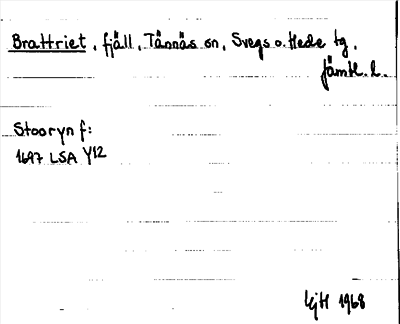 Brattriet, fjäll, Tännäs sn, Svegs o. Hede tg,
Jämtl. l.
Stooryn f:
1697 LSA Y12
KjH 1968